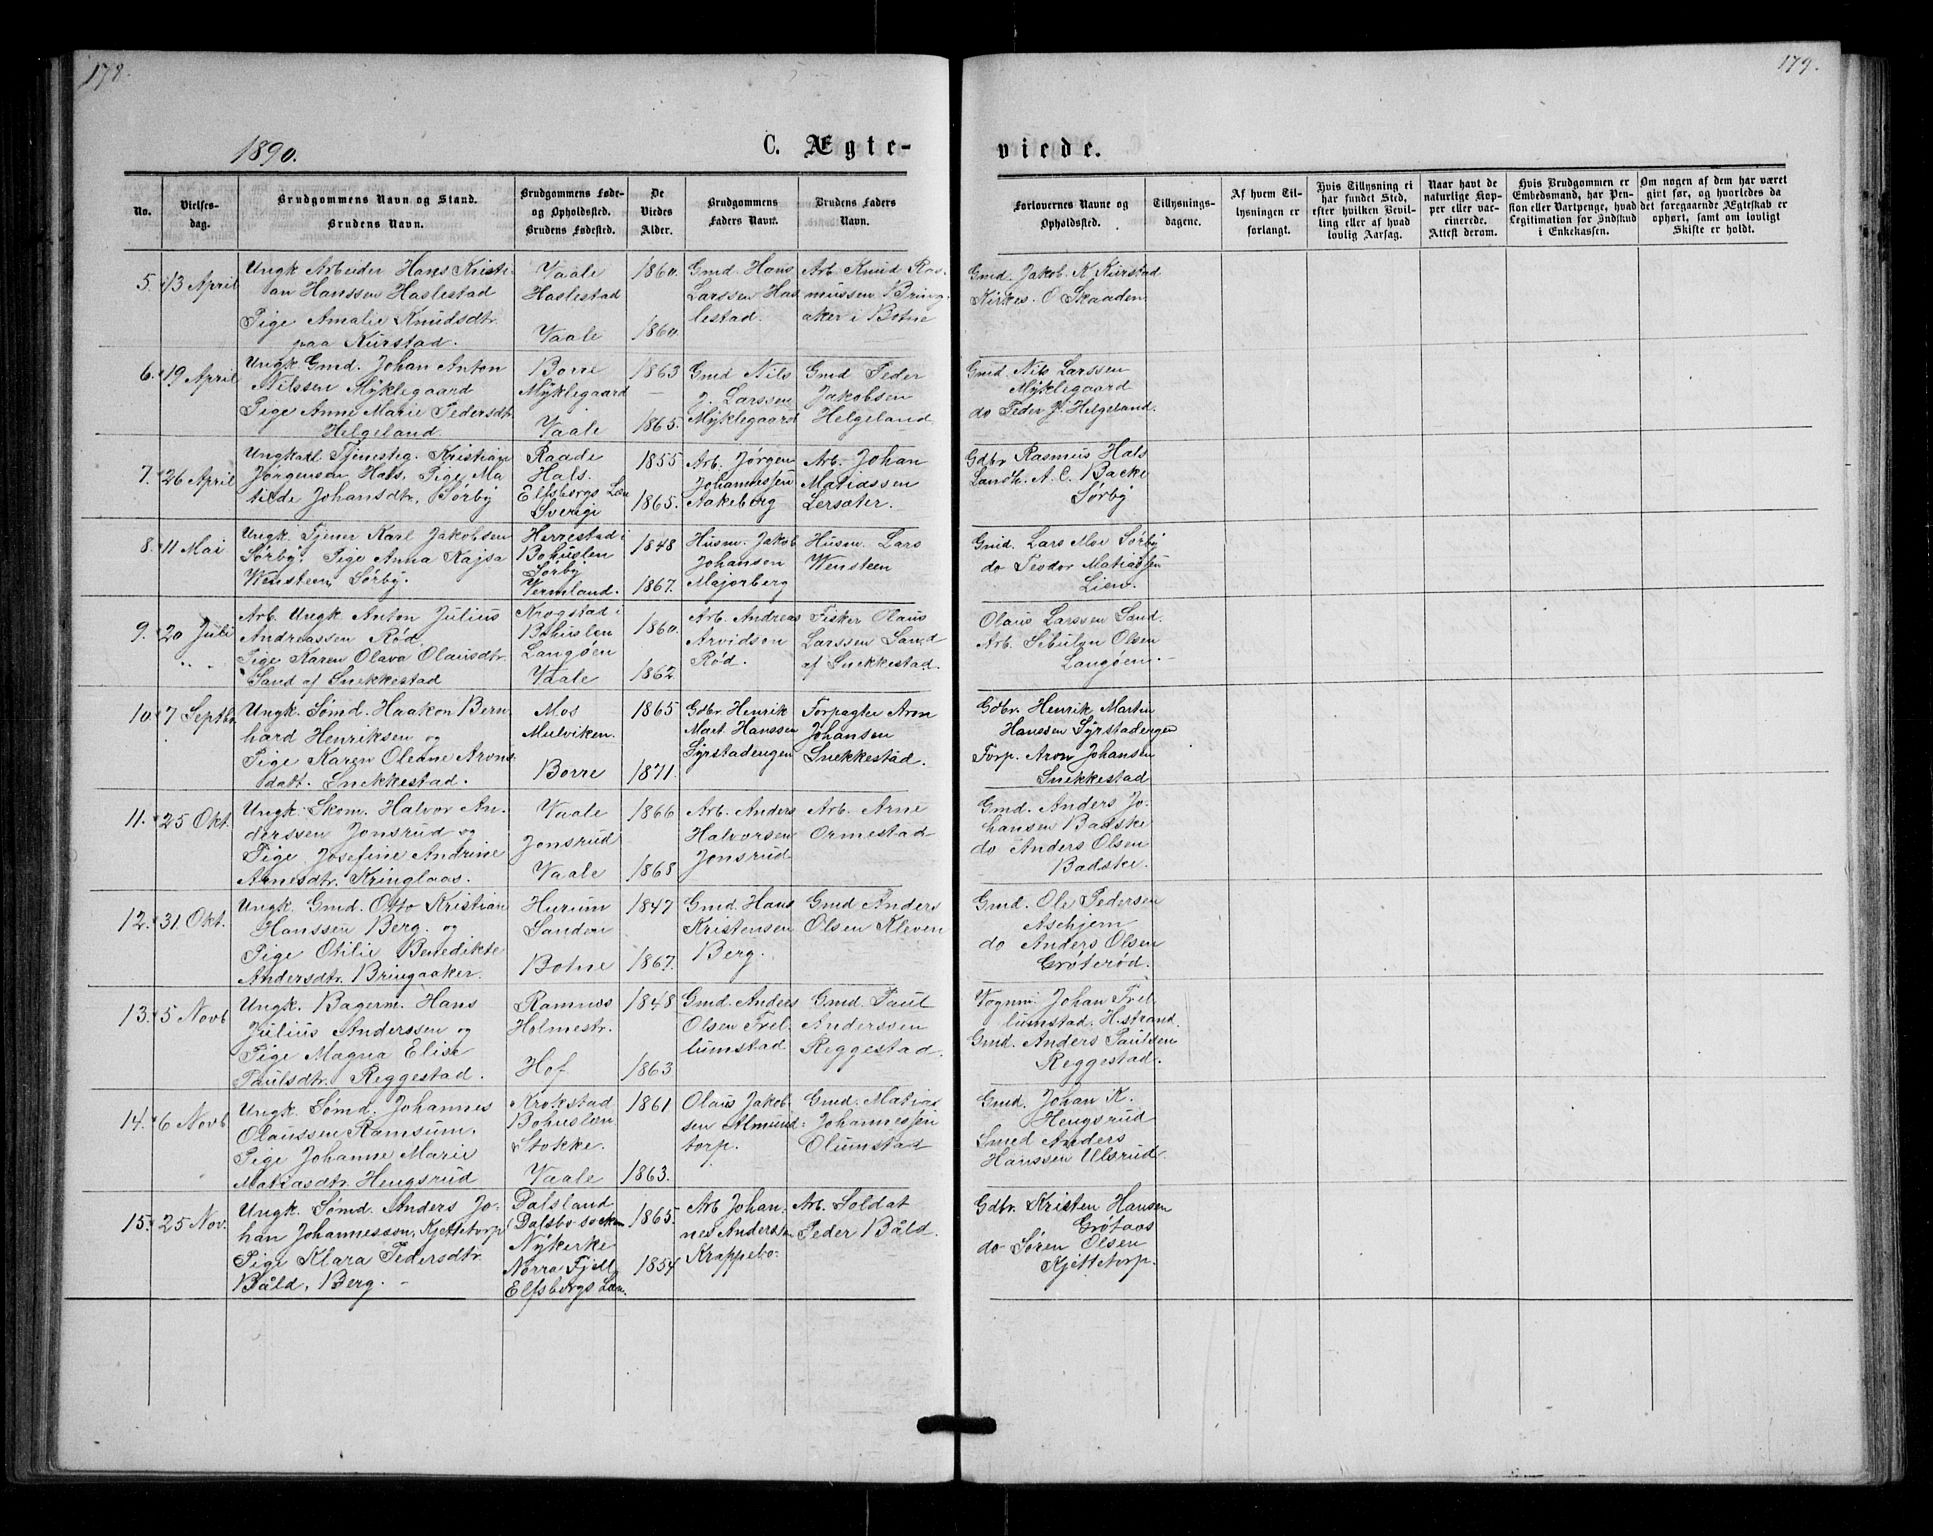 178.
179.
1890.
C. Ægte-
viede.
No.
Vielses-
dag.
Brudgommens Navn og Stand.
Brudens Navn.
Brudgommens Føde-
og Opholdsted.
Brudens Fødested.
De
Viedes
Alder.
Brudgommens
Faders Navn.
Brudens Faders
Navn.
Forlovernes Navne og
Opholdsted.
Tillysnings-
dagene.
Af hvem Til-
lysningen er
forlangt.
Hvis Tillysning ei
har fundet Sted,
efter hvilken Bevil-
ling eller af hvad
lovlig Aarsag.
Naar havt de
naturlige Kop-
per eller vac-
cinerede.
Attest derom.
Hvis Brudgommen er
Embedsmand, har Pen-
sion eller Vartpenge, hvad
Legitimation for Indskud
i Enkekassen.
Om nogen af dem har været
givt før, og hvorledes da
det foregaaende Ægteskab er
ophørt, samt om lovligt
Skifte er holdt.
5. 13 April
Ungk. Arbeider Hans Kristi-
an Hanssen Haslestad
Pige Amalie Knudsdtr.
paa Kirstad.
Vaale
Haslestad
Vaale
1860.
1860
Gmd. Hans
Larssen Has
lestad.
Arb. Knud Ras-
mussen Bring-
aker i Botne
Gmd. Jakob K. Kirstad
Kirkes. O Skaaden
6. 19 April
Ungk. Gmd. Johan Anton
Nilssen Myklegaard
Pige Anne Marie Pedersdtr
Helgeland.
Borre
Myklegaard
Vaale
1863
1865.
Gmd Nils
J. Larssen
Myklegaard
Gmd Peder
Jakobsen
Helgeland
Gmd. Nils Larssen
Myklegaard
do Peder J. Helgeland.
7. 26 April
Ungkarl Tjenesteg. Kristian
Jørgensen Hals, Pige Ma
tilde Johansdtr, Sørby
Raade
Hals.
Elfsborgs Len
Sverige
1855
1865.
Arb. Jørgen
Johannessen
Aakeberg
Arb. Johan
Matiassen
Lersæter.
Gdbr Rasmus Hals
Landh. A. C. Backe
Sørby
8. 11 Mai
Ungk. Tjener Karl Jakobsen
Sørby. Pige Anna Kajsa
Wensteen, Sørby.
Herrestad i
Bohuslen
Sørby
Vermland.
1848
1867.
Husm. Jakob
Johansen
Majorberg
Husm. Lars
Wensteen
Gmd. Lars Moe Sørby
do Teodor Matiassen
Lien.
9. 20 Juli
Arb. Ungk Anton Julius
Andreassen Rød
Pige Karen Olava Olausdtr.
Sand af Snekkestad
Krogstad i
Bohuslen
Langøen
Vaale
1860.
1862.
Arb. Andreas
Arvidson
Rød.
Fisker Olaus
Larssen Sand
af Snekkestad.
Olaus Larssen Sand.
Arb. Olsen
Langøen.
10. 7 Septbr.
Ungk. Sømd. Haakon Bern-
hard Henriksen og
Pige Karen Oleane Arons-
datt. Snekkestad.
Mos
Mulviken.
Borre
1865
1871.
Gdbr Henrik
Mart. Hanssen
Syrstadengen
Forpagter Aron
Johansen
Snekkestad.
Gdbr. Henrik Martin
Hanssen Syrstadengen
Forp. Aron Johansen
Snekkestad
11. 25 Okt.
Ungk. Skom. Halvor An-
derssen Jonsrud og
Pige Josefine Andrine
Arnesdtr. Kringlaas.
Vaale
Jonsrud
Vaale
1866
1868
Arb. Anders
Halvorsen
Jonsrud
Arb. Arne
Ormestad
Gmd. Anders Jo-
hansen Badske
do Anders Olsen
Badske.
12. 31 Okt.
Ungk. Gmd. Otto Kristian
Hanssen Berg. og
Pige Otilie Benedikte
Andersdtr. Bringaaker.
Hurum
Sanden
Botne
1847
1867.
Gmd. Hans
Kristensen
Berg.
Gmd Anders
Olsen Kleven
Gmd. Ole Pedersen
Askjem
do Anders Olsen
Grøterød.
13. 5 Novb
Ungk. Bagerm. Hans
Julius Anderssen og
Pige Magna Elise
Paulsdtr. Reggestad.
Ramnes
Holmestr.
Hof
1848
1863
Gmd. Anders
Olsen Frel-
lumstad
Gmd. Paul
Anderssen
Reggestad.
Vognm. Johan Frel
lumstad. H.strand.
Gmd. Anders Paulsen
Reggestad.
14. 6 Novb
Ungk. Sømd. Johannes
Olaussen Ramsum.
Pige Johanne Marie
Matiasdtr. Hengsrud
Krokstad
Bohuslen
Stokke.
Vaale
1861
1863.
Olaus Jakob-
sen Almund-
torp.
Gmd. Matias
Johannessen
Olumstad
Gmd. Johan K.
Hengsrud
Smed Anders
Hanssen Ulsrud.
15. 25 Nov.
Ungk. Sømd. Anders Jo-
han Johannesson, Kjettetorp
Pige Klara Pedersdtr.
Båld, Berg. -
Dalsland
(Dalsbo socken
Nykerke
Norra Fjell
Elfsborgs Len.
1865.
1854
Arb Johan-
nes Anderssen
Krappebo.
Arb. Soldat
Peder Båld.
Gdbr. Kristen Hansen
Grøtaas
do Søren Olsen
Kjettetorp.